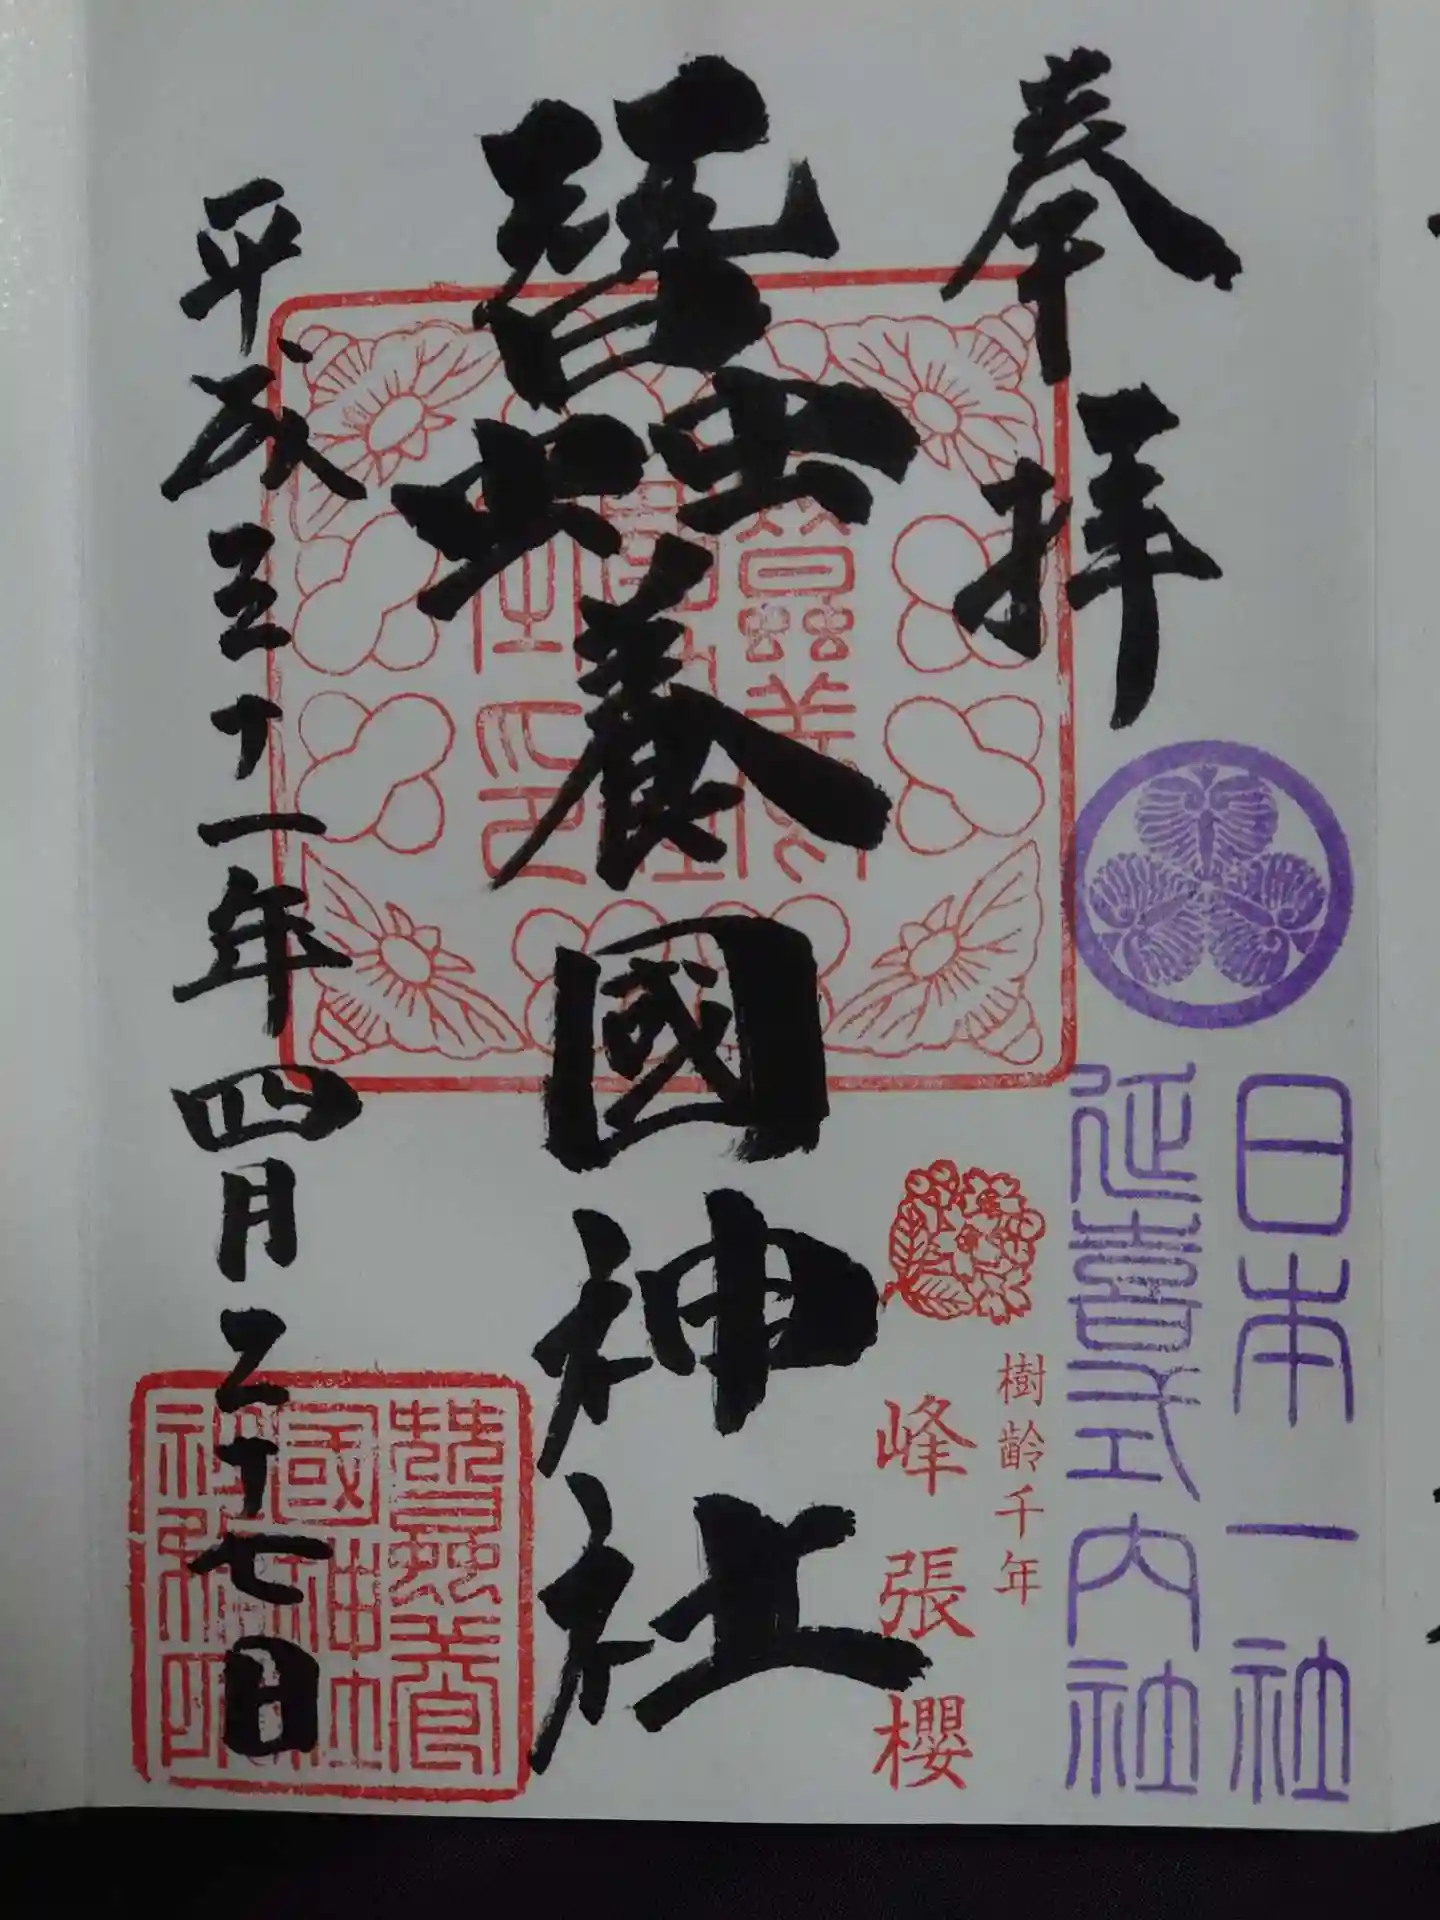 奉拝
日本一社
延喜式内社
樹齢千年
峰張櫻
蠶養國神社
平成三十一年四月二十七日
蠶養
國神社